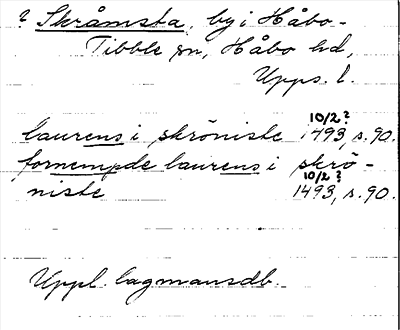 ? Skråmsta, by i Håbo-
Tibble sn, Håbo hd,
Upps. l.
10/2 ?
laurens i skröniste 1493, s. 90.
fornempde laurens i skrö-
10/2 ?
niste 1493, s. 90.
Uppl. lagmansdb.